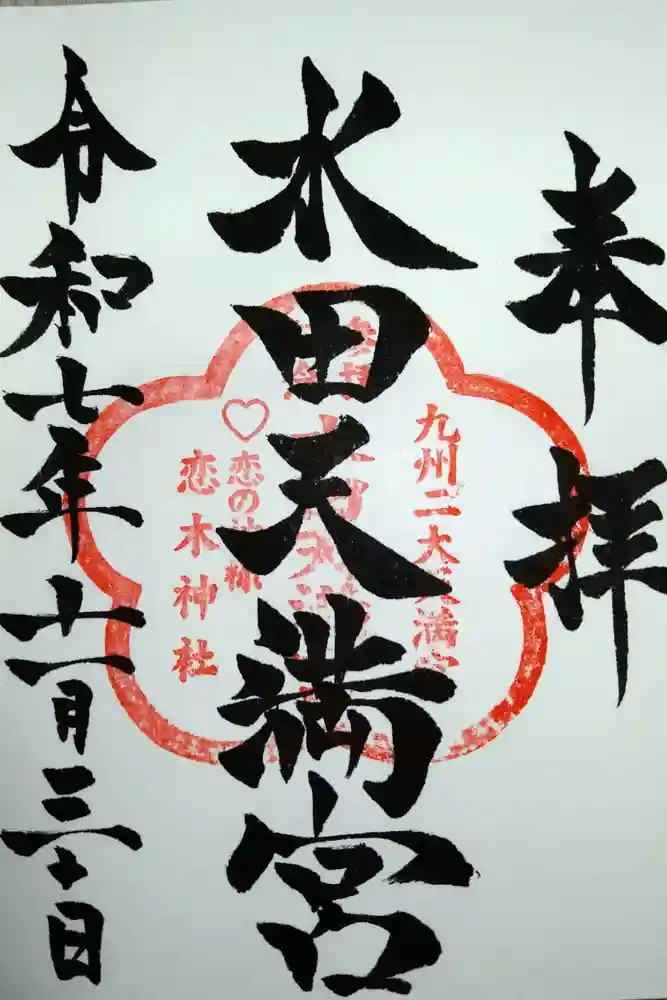 奉拝
九州二大天満宮
水田天満宮
恋の神様
恋木神社
令和七年十一月三十日